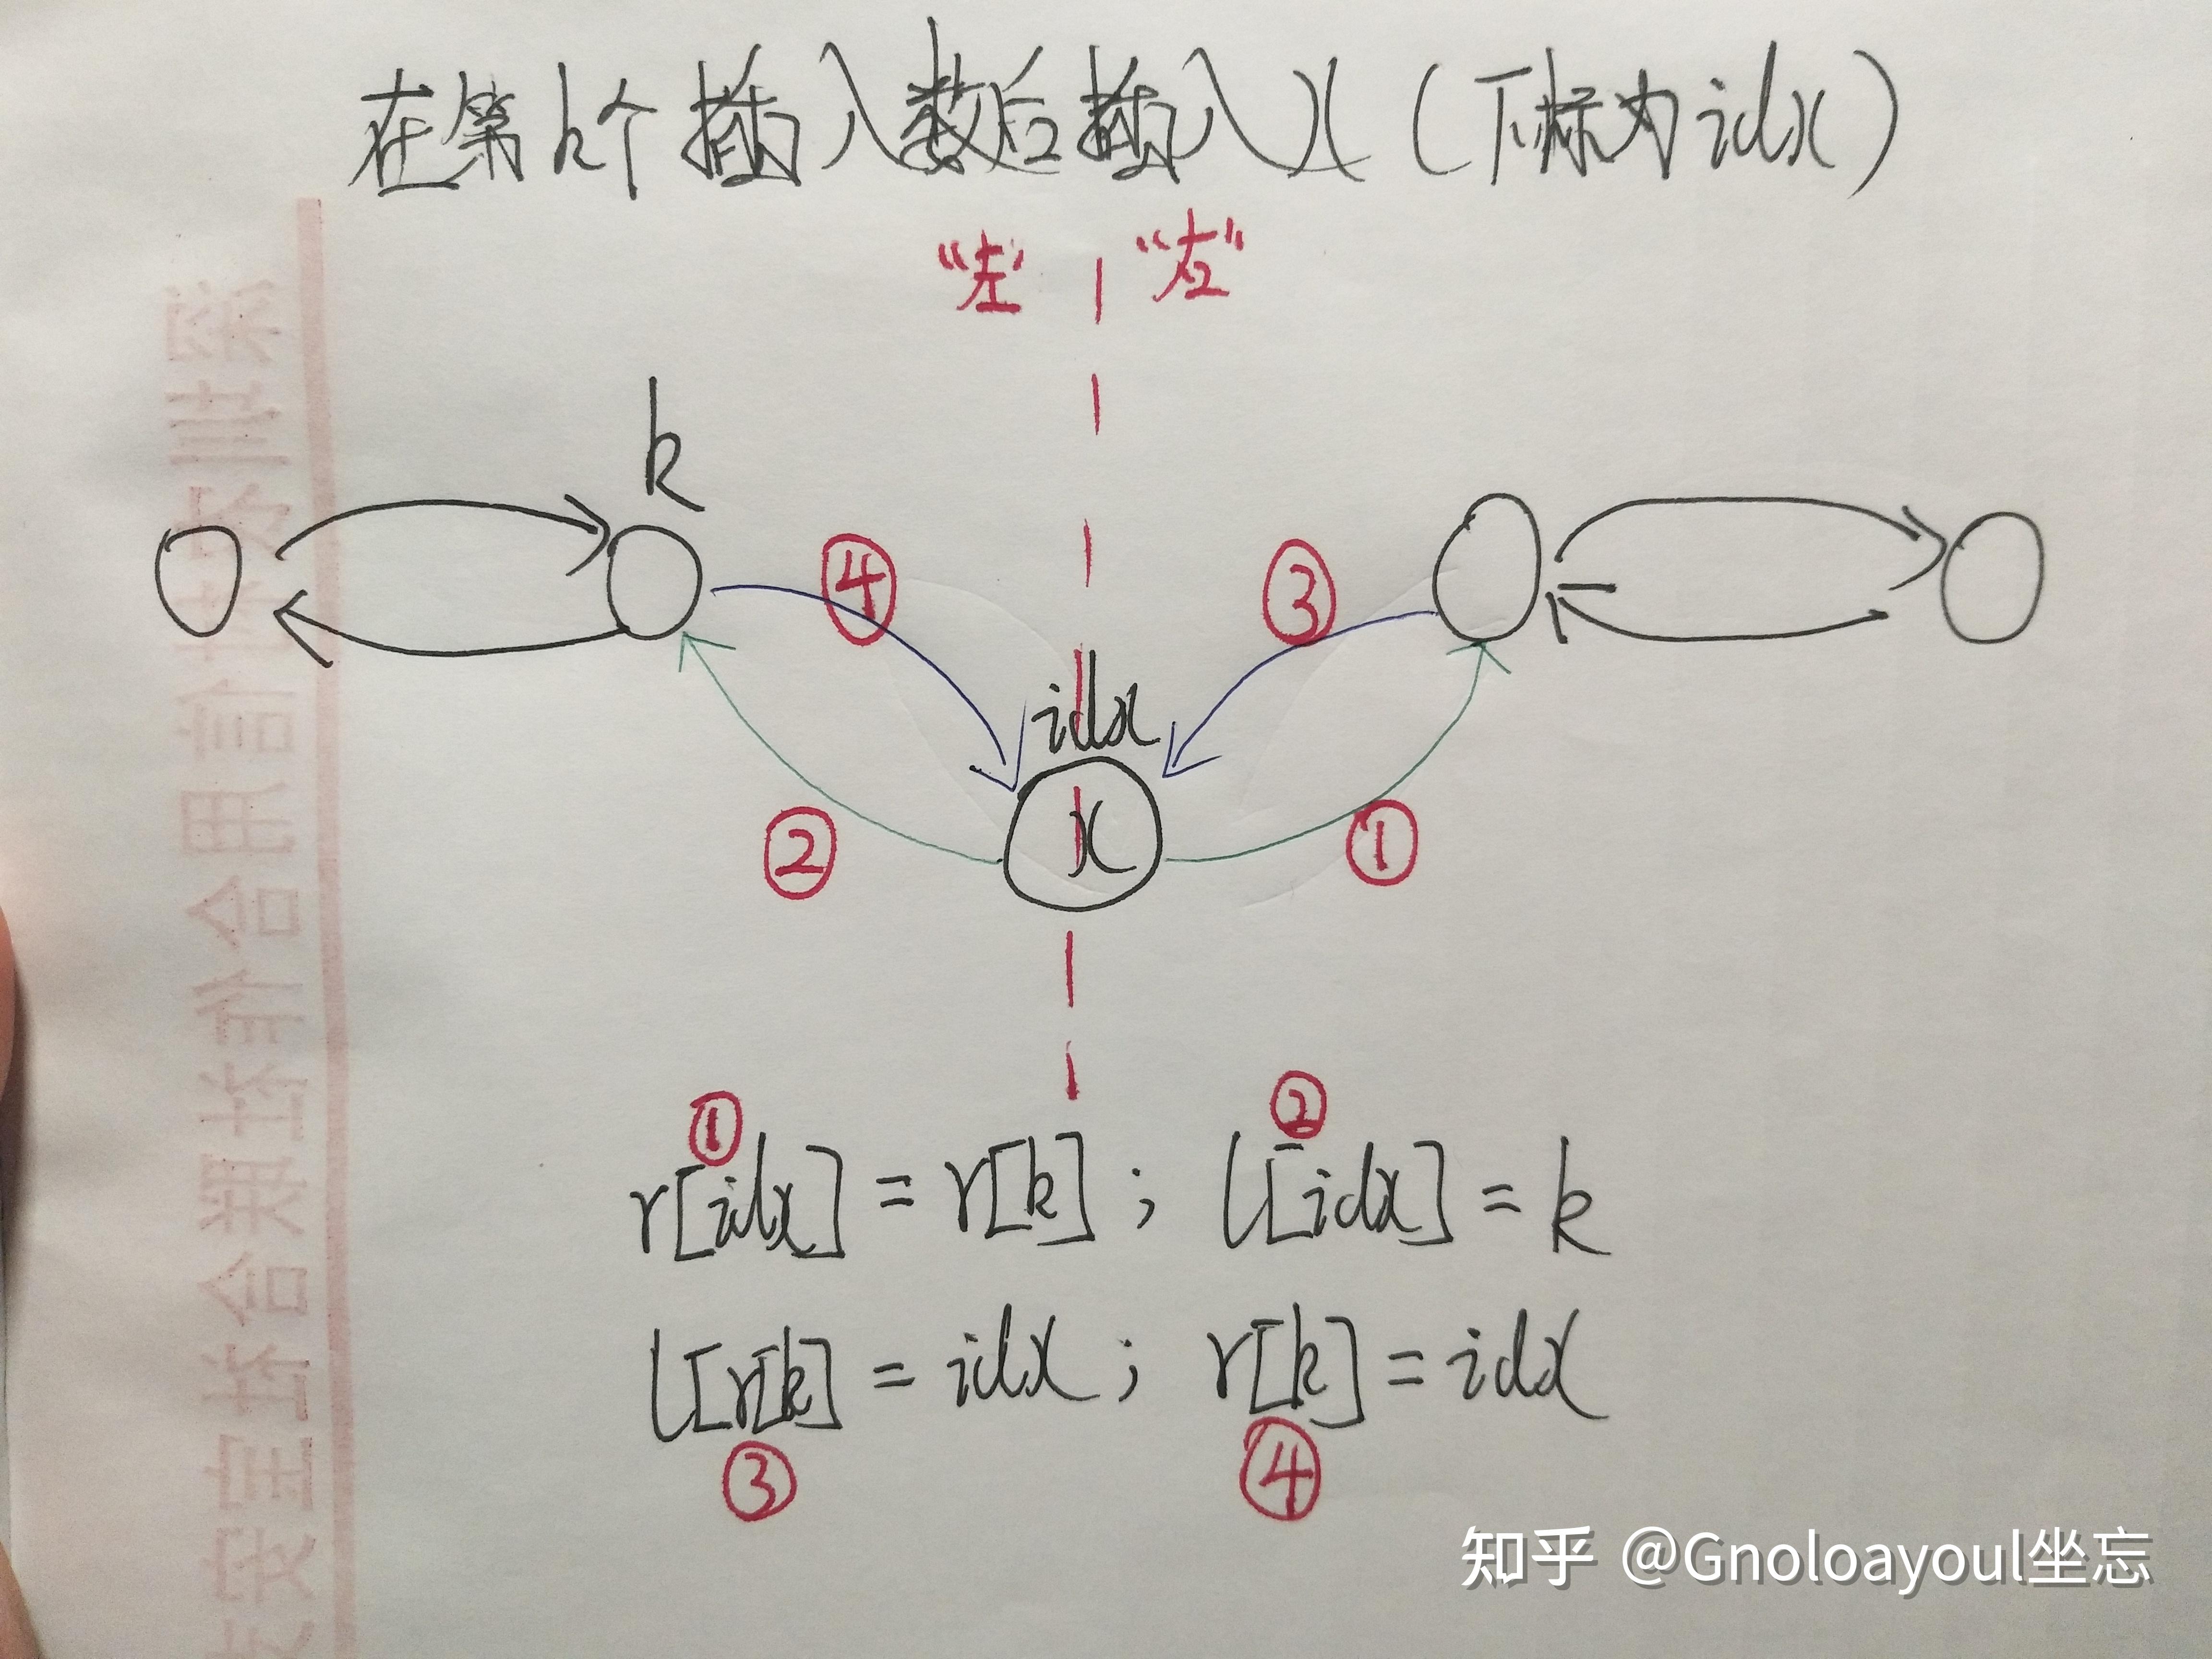 在第k个插入数后插入x（下标为idx）
“左” “右”
k
④ ③
idx
x
② ①
① ②
r[idx] = r[k]; l[idx] = k
l[r[k]] = idx; r[k] = idx
③ ④
知乎 @Gnoloayoul坐忘